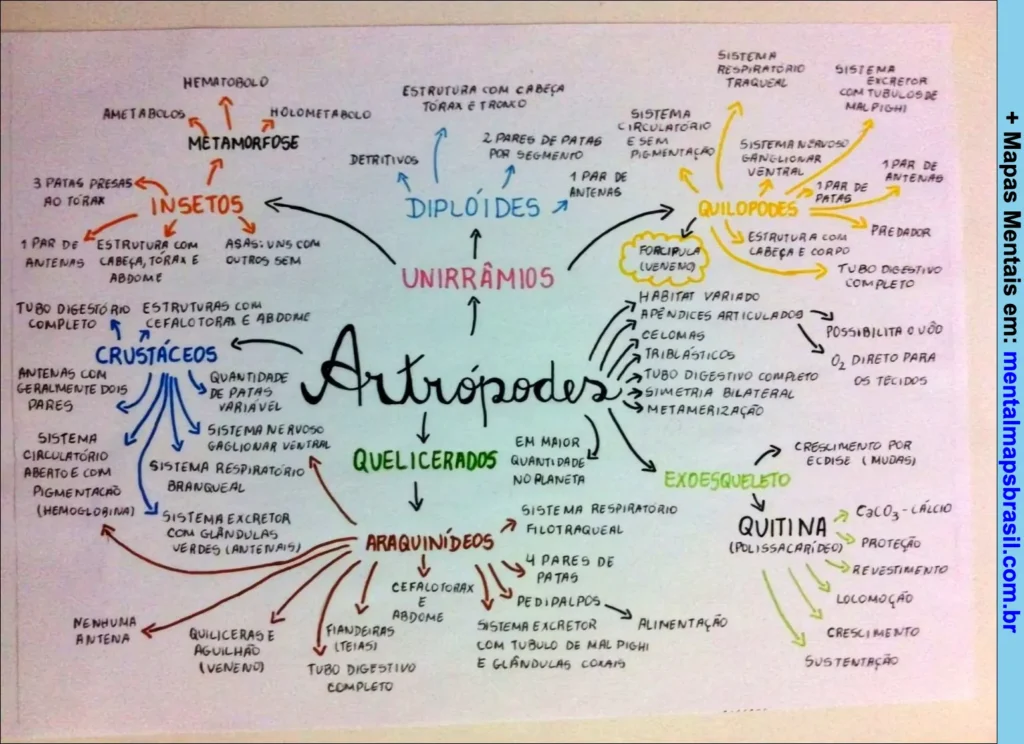 HEMATOBOLO
AMETABOLOS
HOLOMETABOLO
METAMORFOSE
3 PATAS PRESAS
AO TÓRAX
INSETOS
1 PAR DE
ANTENAS
ESTRUTURA COM
CABEÇA, TÓRAX E
ABDOME
ASAS: UNS COM
OUTROS SEM
ESTRUTURA COM CABEÇA
TÓRAX E TRONCO
DETRITIVOS
2 PARES DE PATAS
POR SEGMENTO
1 PAR DE
ANTENAS
DIPLÓIDES
UNIRRÂMIOS
SISTEMA
RESPIRATÓRIO
TRAQUEAL
SISTEMA
EXCRETOR
COM TUBULOS DE
MALPIGHI
SISTEMA
CIRCULATÓRIO
E SEM
PIGMENTAÇÃO
SISTEMA NERVOSO
GANGLIONAR
VENTRAL
1 PAR DE
PATAS
1 PAR DE
ANTENAS
QUILOPODES
PREDADOR
FORCIPULA
(VENENO)
ESTRUTURA COM
CABEÇA E CORPO
TUBO DIGESTIVO
COMPLETO
TUBO DIGESTÓRIO
COMPLETO
ESTRUTURAS COM
CEFALOTORAX E ABDOME
CRUSTÁCEOS
ANTENAS COM
GERALMENTE DOIS
PARES
QUANTIDADE
DE PATAS
VARIÁVEL
SISTEMA
CIRCULATÓRIO
ABERTO E COM
PIGMENTAÇÃO
(HEMOGLOBINA)
SISTEMA NERVOSO
GAGLIONAR VENTRAL
SISTEMA RESPIRATÓRIO
BRANQUEAL
SISTEMA EXCRETOR
COM GLÂNDULAS
VERDES (ANTENAIS)
Artrópodes
HABITAT VARIADO
APÊNDICES ARTICULADOS
POSSIBILITA O VÔO
O2 DIRETO PARA
OS TECIDOS
CELOMAS
TRIBLÁSTICOS
TUBO DIGESTIVO COMPLETO
SIMETRIA BILATERAL
METAMERIZAÇÃO
EM MAIOR
QUANTIDADE
NO PLANETA
QUELICERADOS
EXOESQUELETO
CRESCIMENTO POR
ECDISE (MUDAS)
QUITINA
(POLISSACARÍDEO)
CaCO3 - CÁLCIO
PROTEÇÃO
REVESTIMENTO
LOCOMOÇÃO
CRESCIMENTO
SUSTENTAÇÃO
ARAQUINÍDEOS
SISTEMA RESPIRATÓRIO
FILOTRAQUEAL
4 PARES DE
PATAS
PEDIPALPOS
ALIMENTAÇÃO
CEFALOTORAX
E
ABDOME
SISTEMA EXCRETOR
COM TUBULO DE MALPIGHI
E GLÂNDULAS COXAIS
FIANDEIRAS
(TEIAS)
TUBO DIGESTIVO
COMPLETO
QUILICERAS E
AGUILHÃO
(VENENO)
NENHUMA
ANTENA
+ Mapas Mentais em: mentalmapsbrasil.com.br